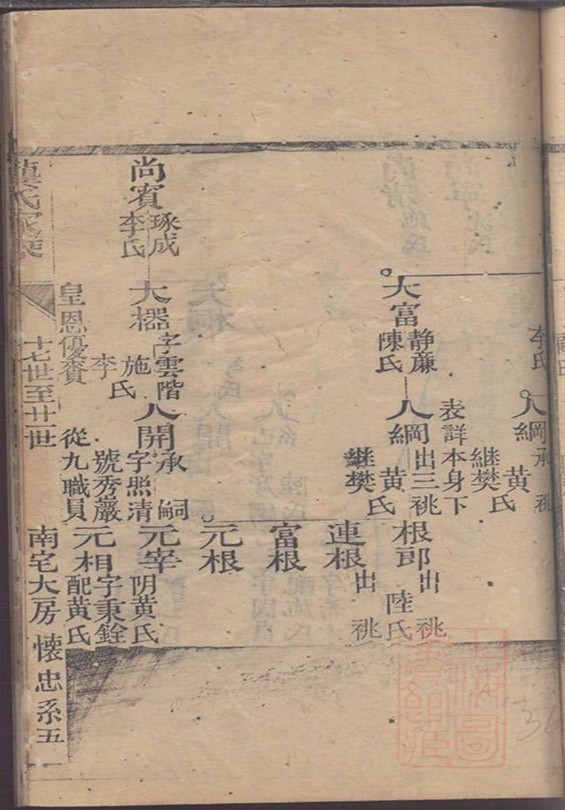 李氏
人綱 承祧
黃氏
繼樊氏
表詳本身下
大富 静亷
陳氏
人綱 出三祧
黃氏
繼樊氏
根郎 出祧
陸氏
連根 出祧
富根
元根
尚賓 琢成
李氏
大櫑 字雲階
施氏
李
皇恩優賚
人開 承嗣
字照清
號秀巖
從九職員
元宰 阴黃氏
元相 字秉銓
配黃氏
十七世至廿一世
南宅大房 懷忠系五